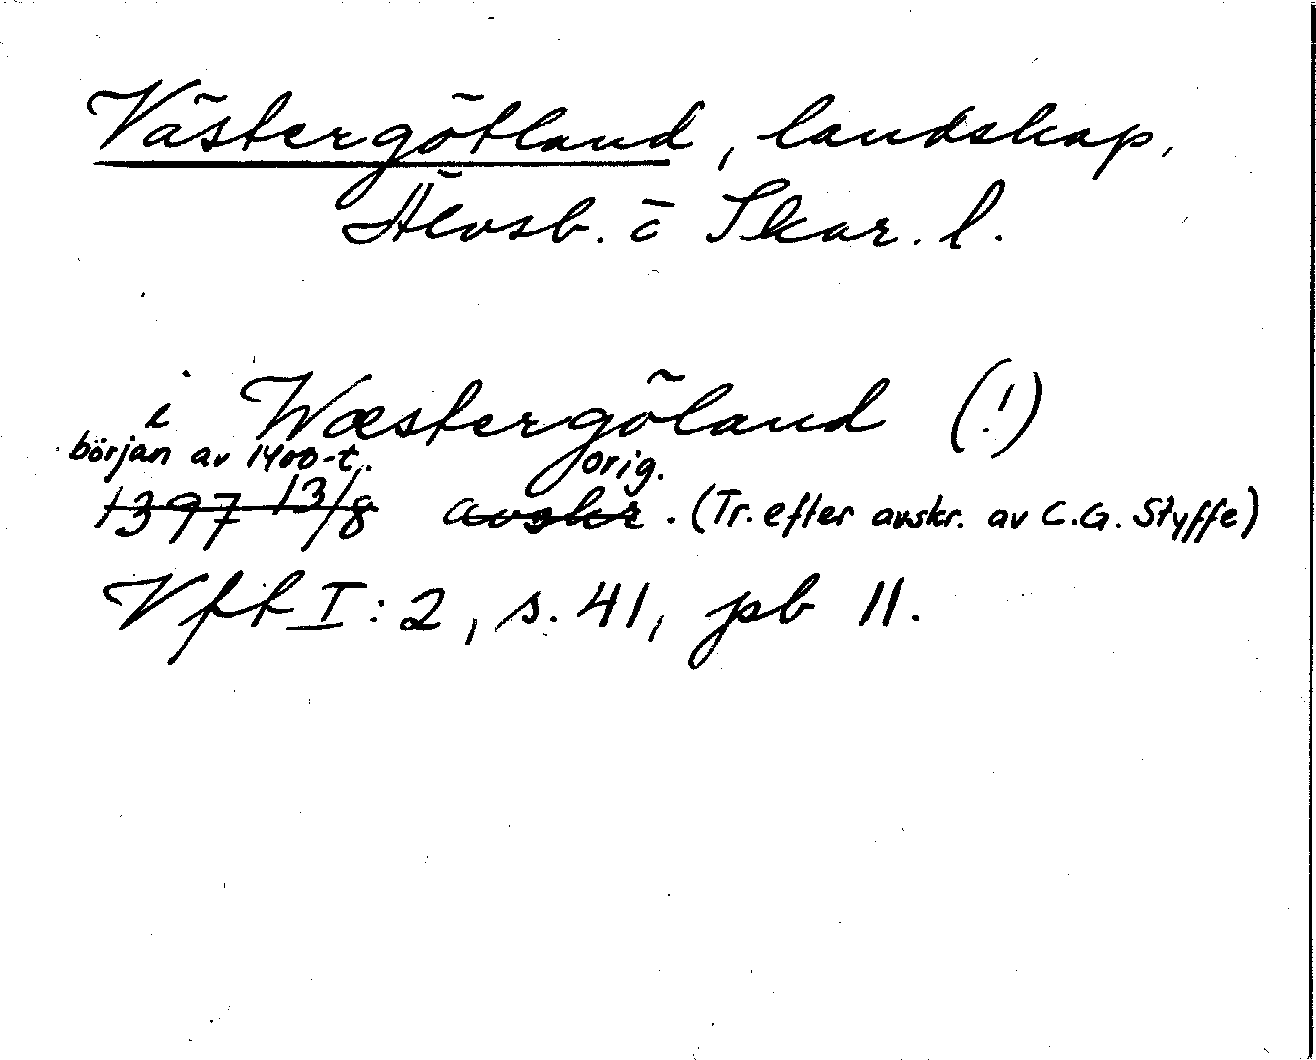 Västergötland, landskap,
Älvsb. o Skar. l.
i Wæstergöland (!)
början av 1400-t. orig.
1397 13/8 avskr. (Tr. efter avskr. av C.G. Styffe)
Vft I:2, s. 41, pb 11.